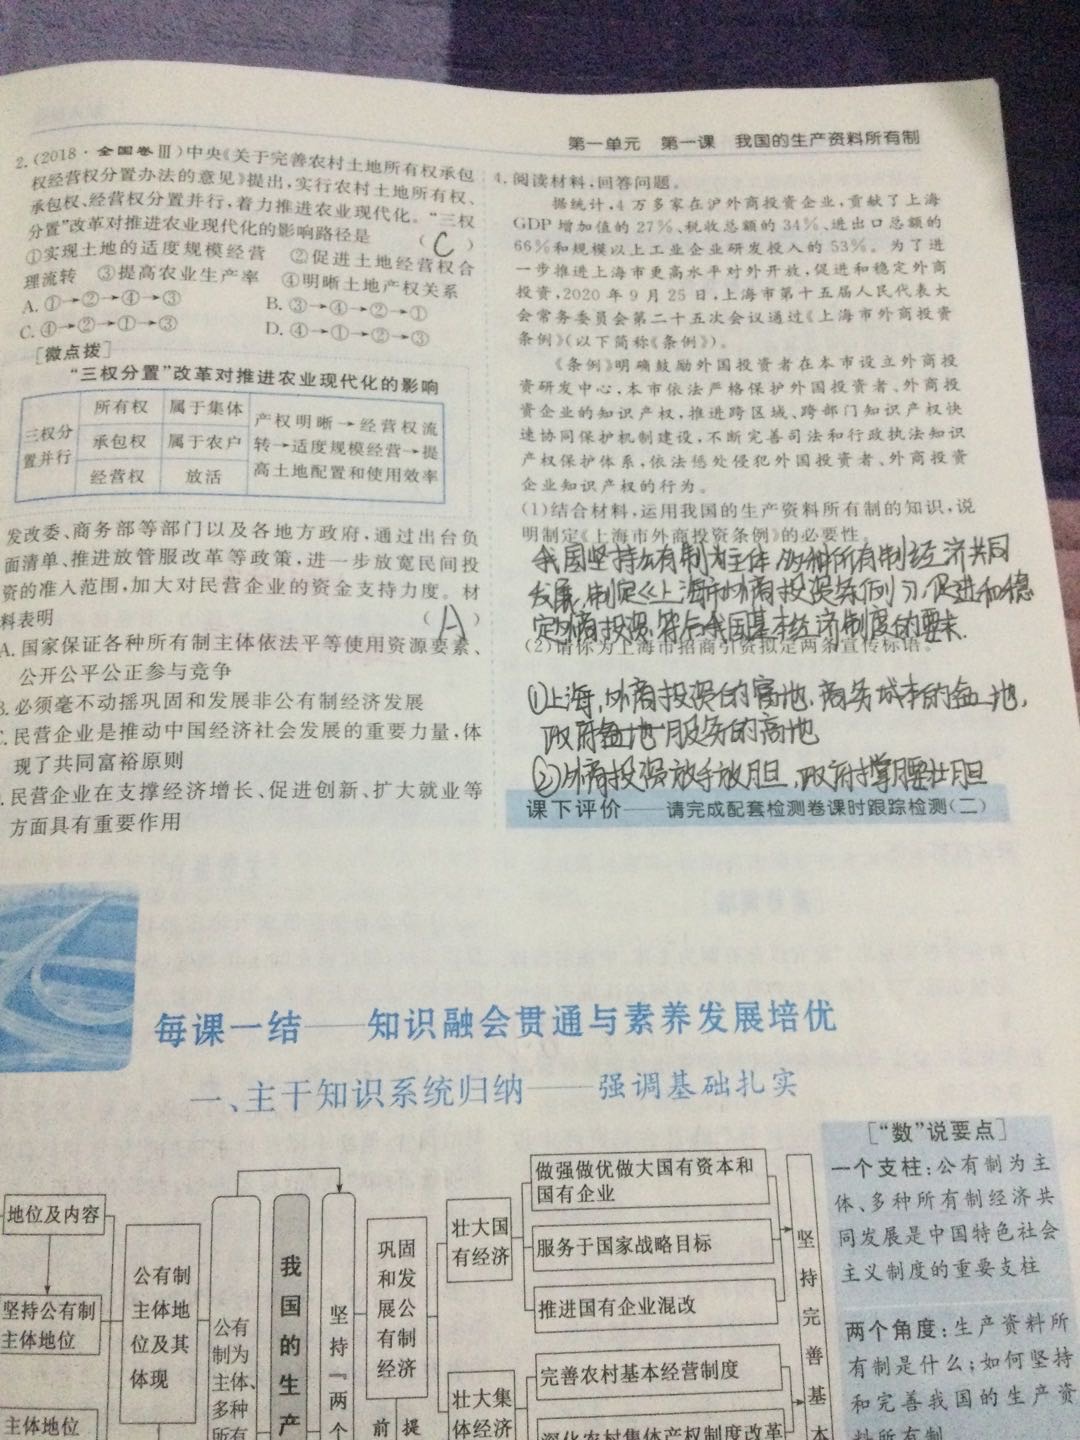 第一单元 第一课 我国的生产资料所有制
2.(2018·全国卷Ⅲ)中央《关于完善农村土地所有权承包
权经营权分置办法的意见》提出,实行农村土地所有权、
承包权、经营权分置并行,着力推进农业现代化。“三权
分置”改革对推进农业现代化的影响路径是 ( C )
①实现土地的适度规模经营 ②促进土地经营权合
理流转 ③提高农业生产率 ④明晰土地产权关系
A.①→②→④→③ B.③→④→②→①
C.④→②→①→③ D.④→①→②→③
[微点拨]
“三权分置”改革对推进农业现代化的影响
三权分
置并行
所有权 属于集体
承包权 属于农户
经营权 放活
产权明晰→经营权流
转→适度规模经营→提
高土地配置和使用效率
发改委、商务部等部门以及各地方政府,通过出台负
面清单、推进放管服改革等政策,进一步放宽民间投
资的准入范围,加大对民营企业的资金支持力度。材
料表明 ( A )
A.国家保证各种所有制主体依法平等使用资源要素、
公开公平公正参与竞争
B.必须毫不动摇巩固和发展非公有制经济发展
C.民营企业是推动中国经济社会发展的重要力量,体
现了共同富裕原则
.民营企业在支撑经济增长、促进创新、扩大就业等
方面具有重要作用
4.阅读材料,回答问题。
据统计,4万多家在沪外商投资企业,贡献了上海
GDP增加值的27%、税收总额的34%、进出口总额的
66%和规模以上工业企业研发投入的53%。为了进
一步推进上海市更高水平对外开放,促进和稳定外商
投资,2020年9月25日,上海市第十五届人民代表大
会常务委员会第二十五次会议通过《上海市外商投资
条例》(以下简称《条例》)。
《条例》明确鼓励外国投资者在本市设立外商投
资研发中心,本市依法严格保护外国投资者、外商投
资企业的知识产权,推进跨区域、跨部门知识产权快
速协同保护机制建设,不断完善司法和行政执法知识
产权保护体系,依法惩处侵犯外国投资者、外商投资
企业知识产权的行为。
(1)结合材料,运用我国的生产资料所有制的知识,说
明制定《上海市外商投资条例》的必要性。
我国坚持公有制为主体、多种所有制经济共同
发展,制定《上海市外商投资条例》,促进和稳
定外商投资,符合我国基本经济制度的要求.
(2)请你为上海市招商引资拟定两条宣传标语。
①上海,外商投资的富地,商务成本的盆地,
政府 服务的高地
②外商投资放手放胆,政府撑腰壮胆
课下评价——请完成配套检测卷课时跟踪检测(二)
每课一结——知识融会贯通与素养发展培优
一、主干知识系统归纳——强调基础扎实
地位及内容
坚持公有制
主体地位
主体地位
公有制
主体地
位及其
体现
公有
制为
主体、
多种
所有
我
国
的
生
产
坚
持
『
两
个
巩固
和发
展公
有制
经济
前提
壮大国
有经济
壮大集
体经济
做强做优做大国有资本和
国有企业
服务于国家战略目标
推进国有企业混改
完善农村基本经营制度
深化农村集体产权制度改革
坚
持
完
善
基
本
[“数”说要点]
一个支柱:公有制为主
体、多种所有制经济共
同发展是中国特色社会
主义制度的重要支柱
两个角度:生产资料所
有制是什么;如何坚持
和完善我国的生产资
料所有制